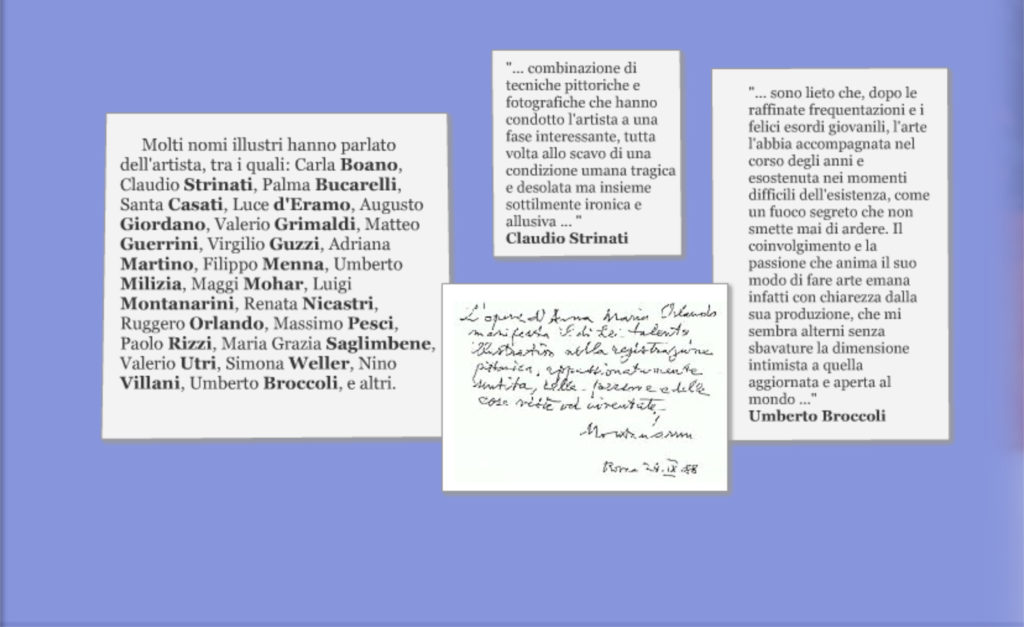 Molti nomi illustri hanno parlato
dell'artista, tra i quali: Carla Boano,
Claudio Strinati, Palma Bucarelli,
Santa Casati, Luce d'Eramo, Augusto
Giordano, Valerio Grimaldi, Matteo
Guerrini, Virgilio Guzzi, Adriana
Martino, Filippo Menna, Umberto
Milizia, Maggi Mohar, Luigi
Montanarini, Renata Nicastri,
Ruggero Orlando, Massimo Pesci,
Paolo Rizzi, Maria Grazia Saglimbene,
Valerio Utri, Simona Weller, Nino
Villani, Umberto Broccoli, e altri.
"... combinazione di
tecniche pittoriche e
fotografiche che hanno
condotto l'artista a una
fase interessante, tutta
volta allo scavo di una
condizione umana tragica
e desolata ma insieme
sottilmente ironica e
allusiva ... "
Claudio Strinati
L'opera d'Anna Maria Orlando
manifesta di lei talento
nella registrazione
pittorica, appassionatamente
sentita, delle persone e delle
cose viste ed inventate
Montanarini
Roma 28.IX.88
"... sono lieto che, dopo le
raffinate frequentazioni e i
felici esordi giovanili, l'arte
l'abbia accompagnata nel
corso degli anni e
esostenuta nei momenti
difficili dell'esistenza, come
un fuoco segreto che non
smette mai di ardere. Il
coinvolgimento e la
passione che anima il suo
modo di fare arte emana
infatti con chiarezza dalla
sua produzione, che mi
sembra alterni senza
sbavature la dimensione
intimista a quella
aggiornata e aperta al
mondo ..."
Umberto Broccoli